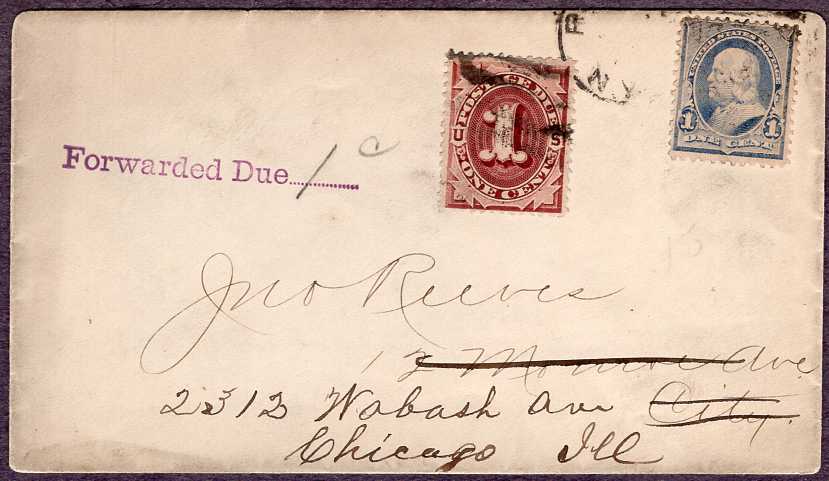 N.Y.
UNITED STATES POSTAGE
1 1
ONE CENT
POSTAGE DUE
U S
1
ONE CENT
Forwarded Due 1c
Jno Reeves
Monroe Ave
2312 Wabash Ave City
Chicago Ill